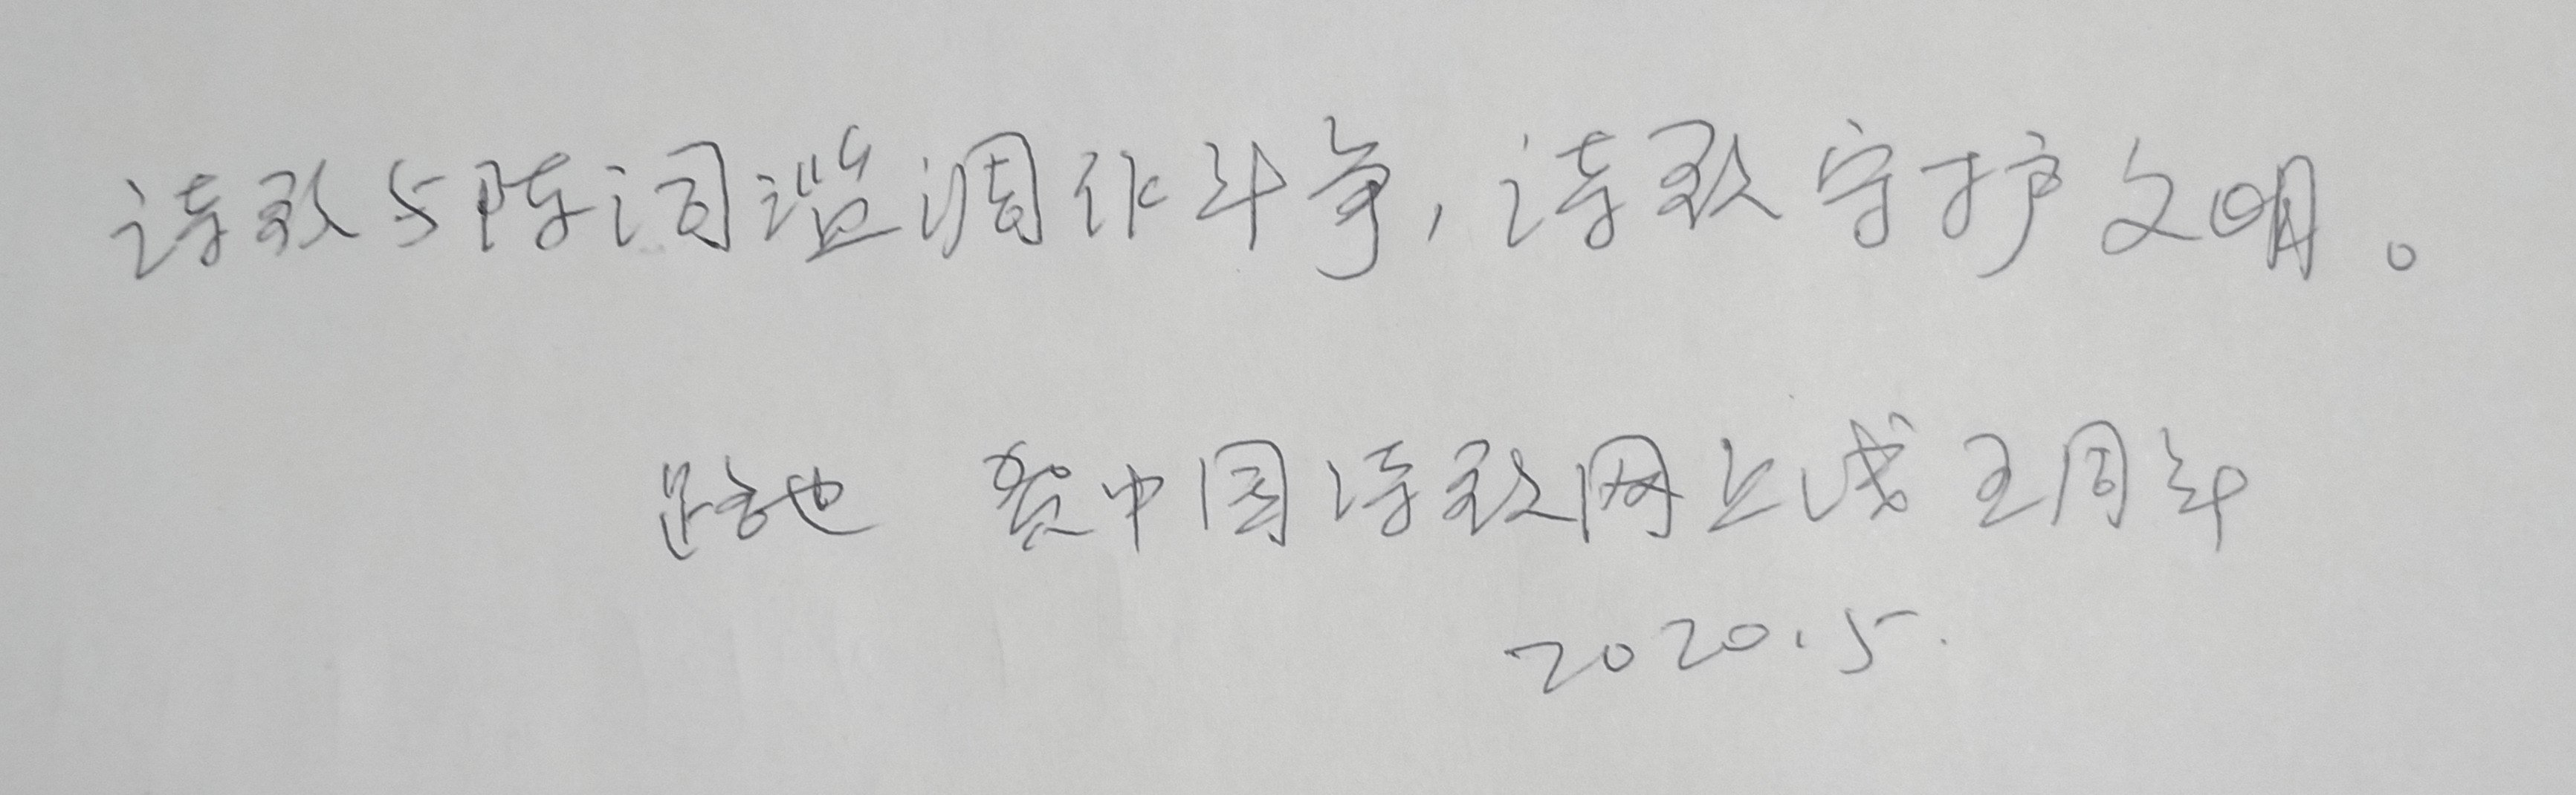 诗歌与陈词滥调作斗争，诗歌守护文明。
路也 贺中国诗歌网上线五周年
2020.5.